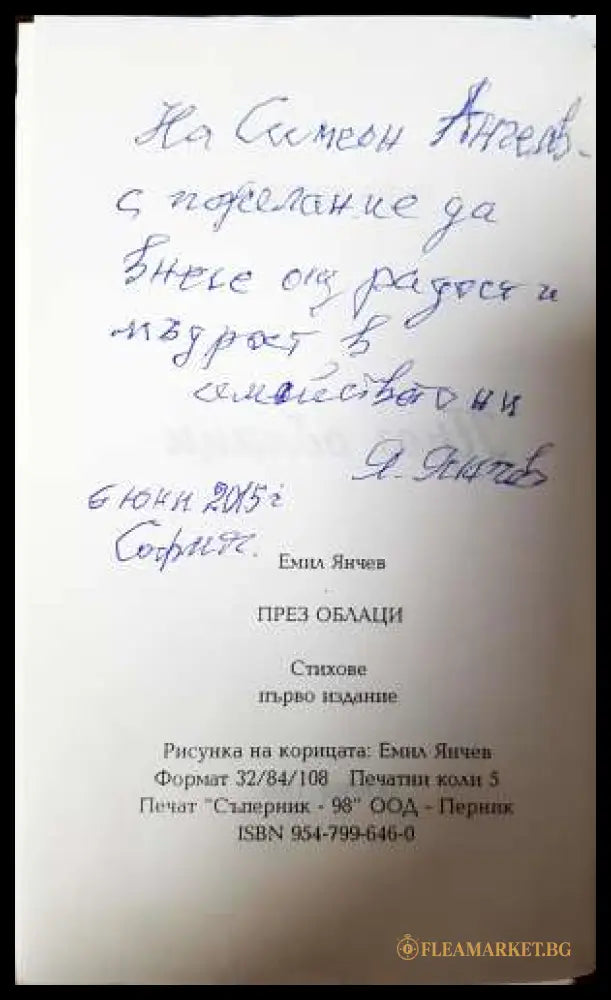 На Симеон Ангелов -
с пожелание да
внесе още радост и
мъдрост в
семейството ни
Я. Янчев
6 юни 2015 г
София.
Емил Янчев
ПРЕЗ ОБЛАЦИ
Стихове
първо издание
Рисунка на корицата: Емил Янчев
Формат 32/84/108 Печатни коли 5
Печат "Съперник - 98" ООД - Перник
ISBN 954-799-646-0
FLEAMARKET.BG